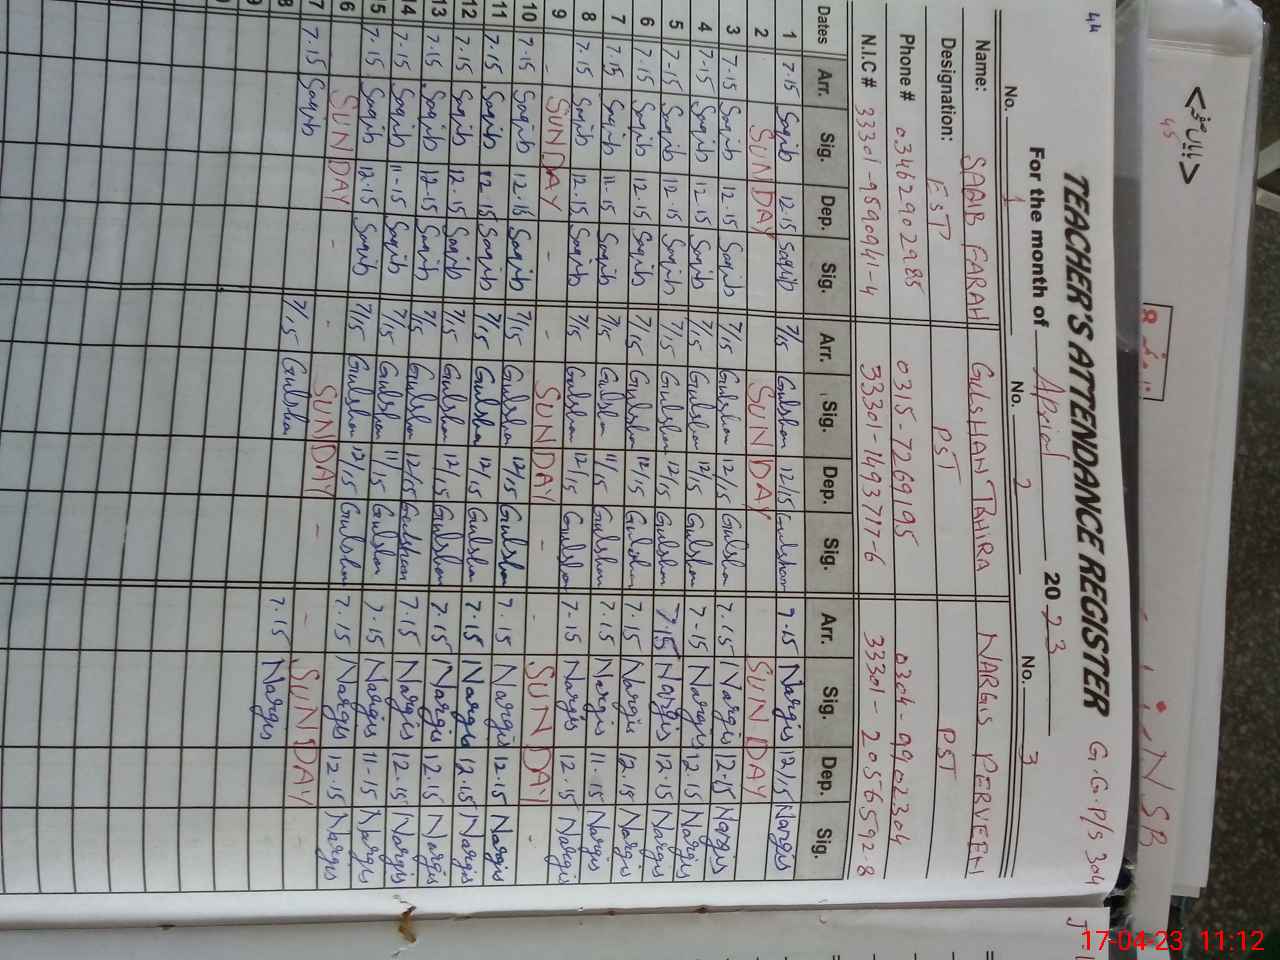 44
TEACHER'S ATTENDANCE REGISTER G.G.P/S 304
For the month of Aprial 2023
No. 1 No. 2 No. 3
Name: SAQIB FARAH GULSHAN TAHIRA NARGIS PERVEEN
Designation: EST PST PST
Phone # 03462902985 0315-7269195 0304-9902304
N.I.C # 33301-9590941-4 33301-1493717-6 33301-2056592-8
Dates Arr. Sig. Dep. Sig. Arr. Sig. Dep. Sig. Arr. Sig. Dep. Sig.
1 7.15 Saqib 12.15 Saqib 7/15 Gulshan 12/15 Gulshan 7.15 Nargis 12/15 Nargis
2 SUNDAY SUNDAY SUNDAY
3 7.15 Saqib 12.15 Saqib 7/15 Gulshan 12/15 Gulshan 7.15 Nargis 12.15 Nargis
4 7-15 Saqib 12.15 Saqib 7/15 Gulshan 12/15 Gulshan 7-15 Nargis 12.15 Nargis
5 7-15 Saqib 12.15 Saqib 7/15 Gulshan 12/15 Gulshan 7.15 Nargis 12.15 Nargis
6 7.15 Saqib 12.15 Saqib 7/15 Gulshan 12/15 Gulshan 7.15 Nargis 12.15 Nargis
7 7.15 Saqib 11.15 Saqib 7/15 Gulshan 11/15 Gulshan 7.15 Nargis 11.15 Nargis
8 7.15 Saqib 12.15 Saqib 7/15 Gulshan 12/15 Gulshan 7-15 Nargis 12.15 Nargis
9 - SUNDAY - - SUNDAY - - SUNDAY -
10 7.15 Saqib 12.15 Saqib 7/15 Gulshan 12/15 Gulshan 7.15 Nargis 12.15 Nargis
11 7.15 Saqib 12.15 Saqib 7/15 Gulshan 12/15 Gulshan 7.15 Nargis 12.15 Nargis
12 7.15 Saqib 12.15 Saqib 7/15 Gulshan 12/15 Gulshan 7.15 Nargis 12.15 Nargis
13 7.15 Saqib 12.15 Saqib 7/15 Gulshan 12/15 Gulshan 7.15 Nargis 12.15 Nargis
14 7.15 Saqib 11-15 Saqib 7/15 Gulshan 11/15 Gulshan 7.15 Nargis 11-15 Nargis
15 7.15 Saqib 12.15 Saqib 7/15 Gulshan 12/15 Gulshan 7.15 Nargis 12.15 Nargis
6 SUNDAY - - SUNDAY - - SUNDAY
7 7.15 Saqib 7/15 Gulshan 7.15 Nargis
8
9
NSB
45
17-04-23 11:12